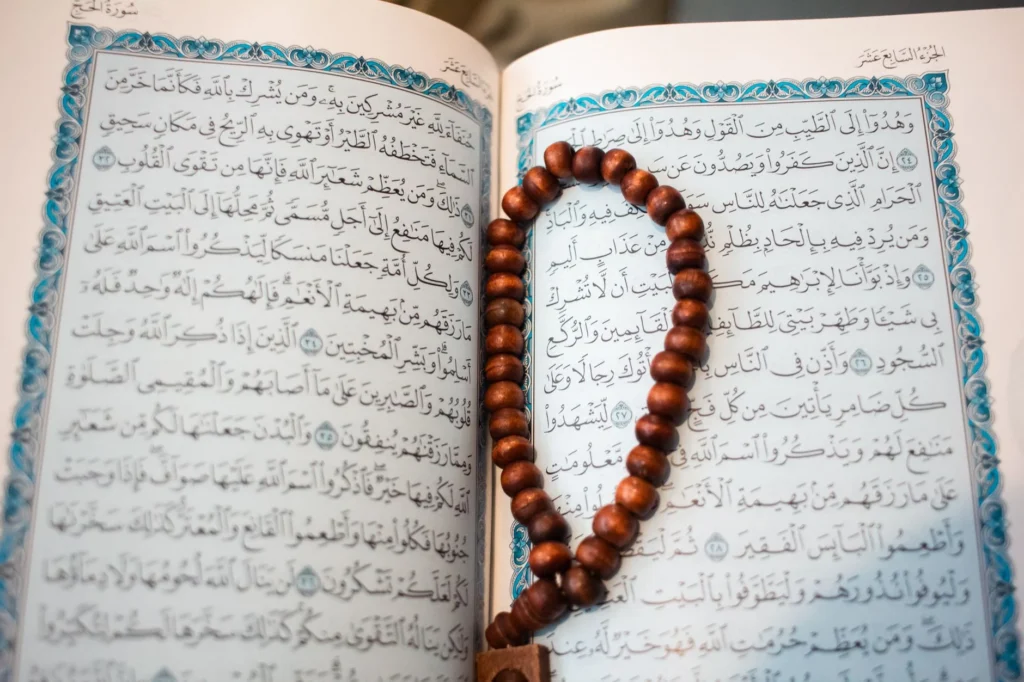 الجُزْءُ السَّابِعَ عَشَرَ
وَهُدُوٓا۟ إِلَى ٱلطَّيِّبِ مِنَ ٱلْقَوْلِ وَهُدُوٓا۟ إِلَىٰ صِرَٰطِ
٢٤ إِنَّ ٱلَّذِينَ كَفَرُوا۟ وَيَصُدُّونَ عَن
ٱلْحَرَامِ ٱلَّذِى جَعَلْنَٰهُ لِلنَّاسِ فِيهِ وَٱلْبَادِ
وَمَن يُرِدْ فِيهِ بِإِلْحَادٍۭ بِظُلْمٍ مِنْ عَذَابٍ أَلِيمٍ
٢٥ وَإِذْ بَوَّأْنَا لِإِبْرَٰهِيمَ أَن لَّا تُشْرِكْ
بِى شَيْـًٔا وَطَهِّرْ بَيْتِىَ وَٱلرُّكَّعِ
ٱلسُّجُودِ ٢٦ وَأَذِّن فِى ٱلنَّاسِ رِجَالًا وَعَلَىٰ
كُلِّ ضَامِرٍ يَأْتِينَ مِن كُلِّ فَجٍّ ٢٧ لِّيَشْهَدُوا۟
مَنَٰفِعَ لَهُمْ وَيَذْكُرُوا۟ ٱسْمَ ٱللَّهِ مَّعْلُومَٰتٍ
عَلَىٰ مَا رَزَقَهُم مِّنۢ بَهِيمَةِ ٱلْأَنْعَٰمِ مِنْهَا
وَأَطْعِمُوا۟ ٱلْبَآئِسَ ٱلْفَقِيرَ ٢٨ ثُمَّ
وَلْيُوفُوا۟ نُذُورَهُمْ وَلْيَطَّوَّفُوا۟ بِٱلْبَيْتِ
ذَٰلِكَ وَمَن يُعَظِّمْ حُرُمَٰتِ ٱللَّهِ فَهُوَ خَيْرٌ لَّهُۥ عِندَ
سُورَةُ الحَجّ
حُنَفَآءَ لِلَّهِ غَيْرَ مُشْرِكِينَ بِهِۦ وَمَن يُشْرِكْ بِٱللَّهِ فَكَأَنَّمَا خَرَّ مِنَ
ٱلسَّمَآءِ فَتَخْطَفُهُ ٱلطَّيْرُ أَوْ تَهْوِى بِهِ ٱلرِّيحُ فِى مَكَانٍ سَحِيقٍ
٣١ ذَٰلِكَ وَمَن يُعَظِّمْ شَعَٰٓئِرَ ٱللَّهِ فَإِنَّهَا مِن تَقْوَى ٱلْقُلُوبِ ٣٢
لَكُمْ فِيهَا مَنَٰفِعُ إِلَىٰٓ أَجَلٍ مُّسَمًّى ثُمَّ مَحِلُّهَآ إِلَى ٱلْبَيْتِ ٱلْعَتِيقِ
٣٣ وَلِكُلِّ أُمَّةٍ جَعَلْنَا مَنسَكًا لِّيَذْكُرُوا۟ ٱسْمَ ٱللَّهِ عَلَىٰ
مَا رَزَقَهُم مِّنۢ بَهِيمَةِ ٱلْأَنْعَٰمِ فَإِلَٰهُكُمْ إِلَٰهٌ وَٰحِدٌ فَلَهُۥٓ
أَسْلِمُوا۟ وَبَشِّرِ ٱلْمُخْبِتِينَ ٣٤ ٱلَّذِينَ إِذَا ذُكِرَ ٱللَّهُ وَجِلَتْ
قُلُوبُهُمْ وَٱلصَّٰبِرِينَ عَلَىٰ مَآ أَصَابَهُمْ وَٱلْمُقِيمِى ٱلصَّلَوٰةِ
وَمِمَّا رَزَقْنَٰهُمْ يُنفِقُونَ ٣٥ وَٱلْبُدْنَ جَعَلْنَٰهَا لَكُم مِّن شَعَٰٓئِرِ
ٱللَّهِ لَكُمْ فِيهَا خَيْرٌ فَٱذْكُرُوا۟ ٱسْمَ ٱللَّهِ عَلَيْهَا صَوَآفَّ فَإِذَا وَجَبَتْ
جُنُوبُهَا فَكُلُوا۟ مِنْهَا وَأَطْعِمُوا۟ ٱلْقَانِعَ وَٱلْمُعْتَرَّ كَذَٰلِكَ سَخَّرْنَٰهَا
لَكُمْ لَعَلَّكُمْ تَشْكُرُونَ ٣٦ لَن يَنَالَ ٱللَّهَ لُحُومُهَا وَلَا دِمَآؤُهَا
وَلَٰكِن يَنَالُهُ ٱلتَّقْوَىٰ مِنكُمْ كَذَٰلِكَ سَخَّرَهَا لَكُمْ لِتُكَبِّرُوا۟